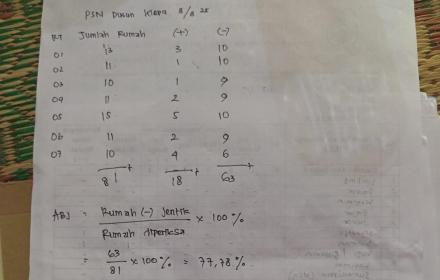 PSN Dusun Klapa 8/8 25
RT Jumlah Rumah (+) (-)
01 13 3 10
02 11 1 10
03 10 1 9
04 11 2 9
05 15 5 10
06 11 2 9
07 10 4 6
81 + 18 + 63 +
ABJ = Rumah (-) Jentik × 100 %
Rumah diperiksa
= 63 × 100 % = 77,78 %
81